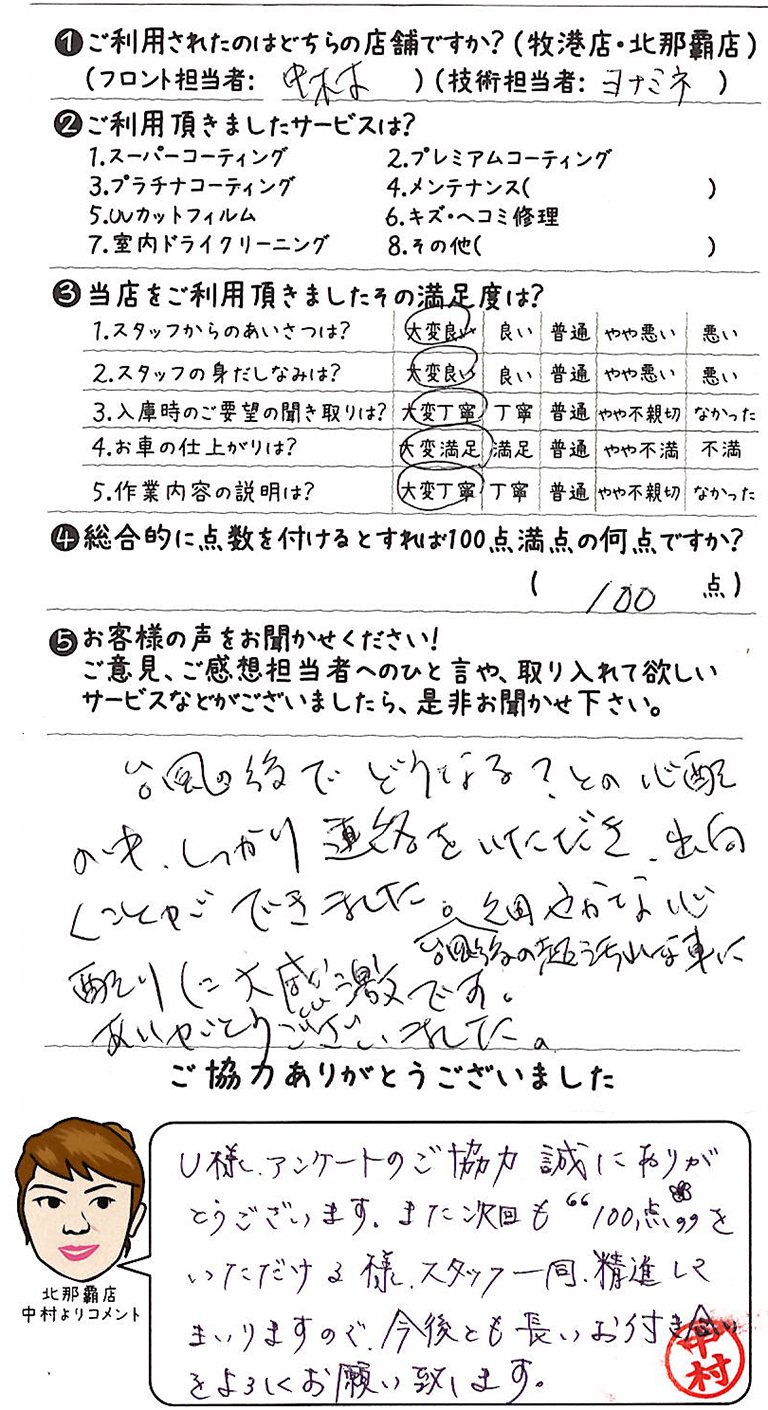 ❶ご利用されたのはどちらの店舗ですか?(牧港店・北那覇店)
(フロント担当者: 中村 )(技術担当者: ヨナミネ )
❷ご利用頂きましたサービスは?
1.スーパーコーティング 2.プレミアムコーティング
3.プラチナコーティング 4.メンテナンス( )
5.UVカットフィルム 6.キズ・ヘコミ修理
7.室内ドライクリーニング 8.その他( )
❸当店をご利用頂きましたその満足度は?
1.スタッフからのあいさつは? 大変良い 良い 普通 やや悪い 悪い
2.スタッフの身だしなみは? 大変良い 良い 普通 やや悪い 悪い
3.入庫時のご要望の聞き取りは? 大変丁寧 丁寧 普通 やや不親切 なかった
4.お車の仕上がりは? 大変満足 満足 普通 やや不満 不満
5.作業内容の説明は? 大変丁寧 丁寧 普通 やや不親切 なかった
❹総合的に点数を付けるとすれば100点満点の何点ですか?
( 100 点)
❺お客様の声をお聞かせください!
ご意見、ご感想担当者へのひと言や、取り入れて欲しい
サービスなどがございましたら、是非お聞かせ下さい。
台風の後でどうなる?との心配
の中、しっかり連絡をいただき、出向
くことができました。細やかな心
台風後の超汚れな車に
配りに大感激です。
ありがとうございました。
ご協力ありがとうございました
U様、アンケートのご協力 誠にありが
とうございます。また次回も“100点”を
いただける様、スタッフ一同、精進して
まいりますので、今後とも長いお付き合い
をよろしくお願い致します。
中村
北那覇店
中村よりコメント